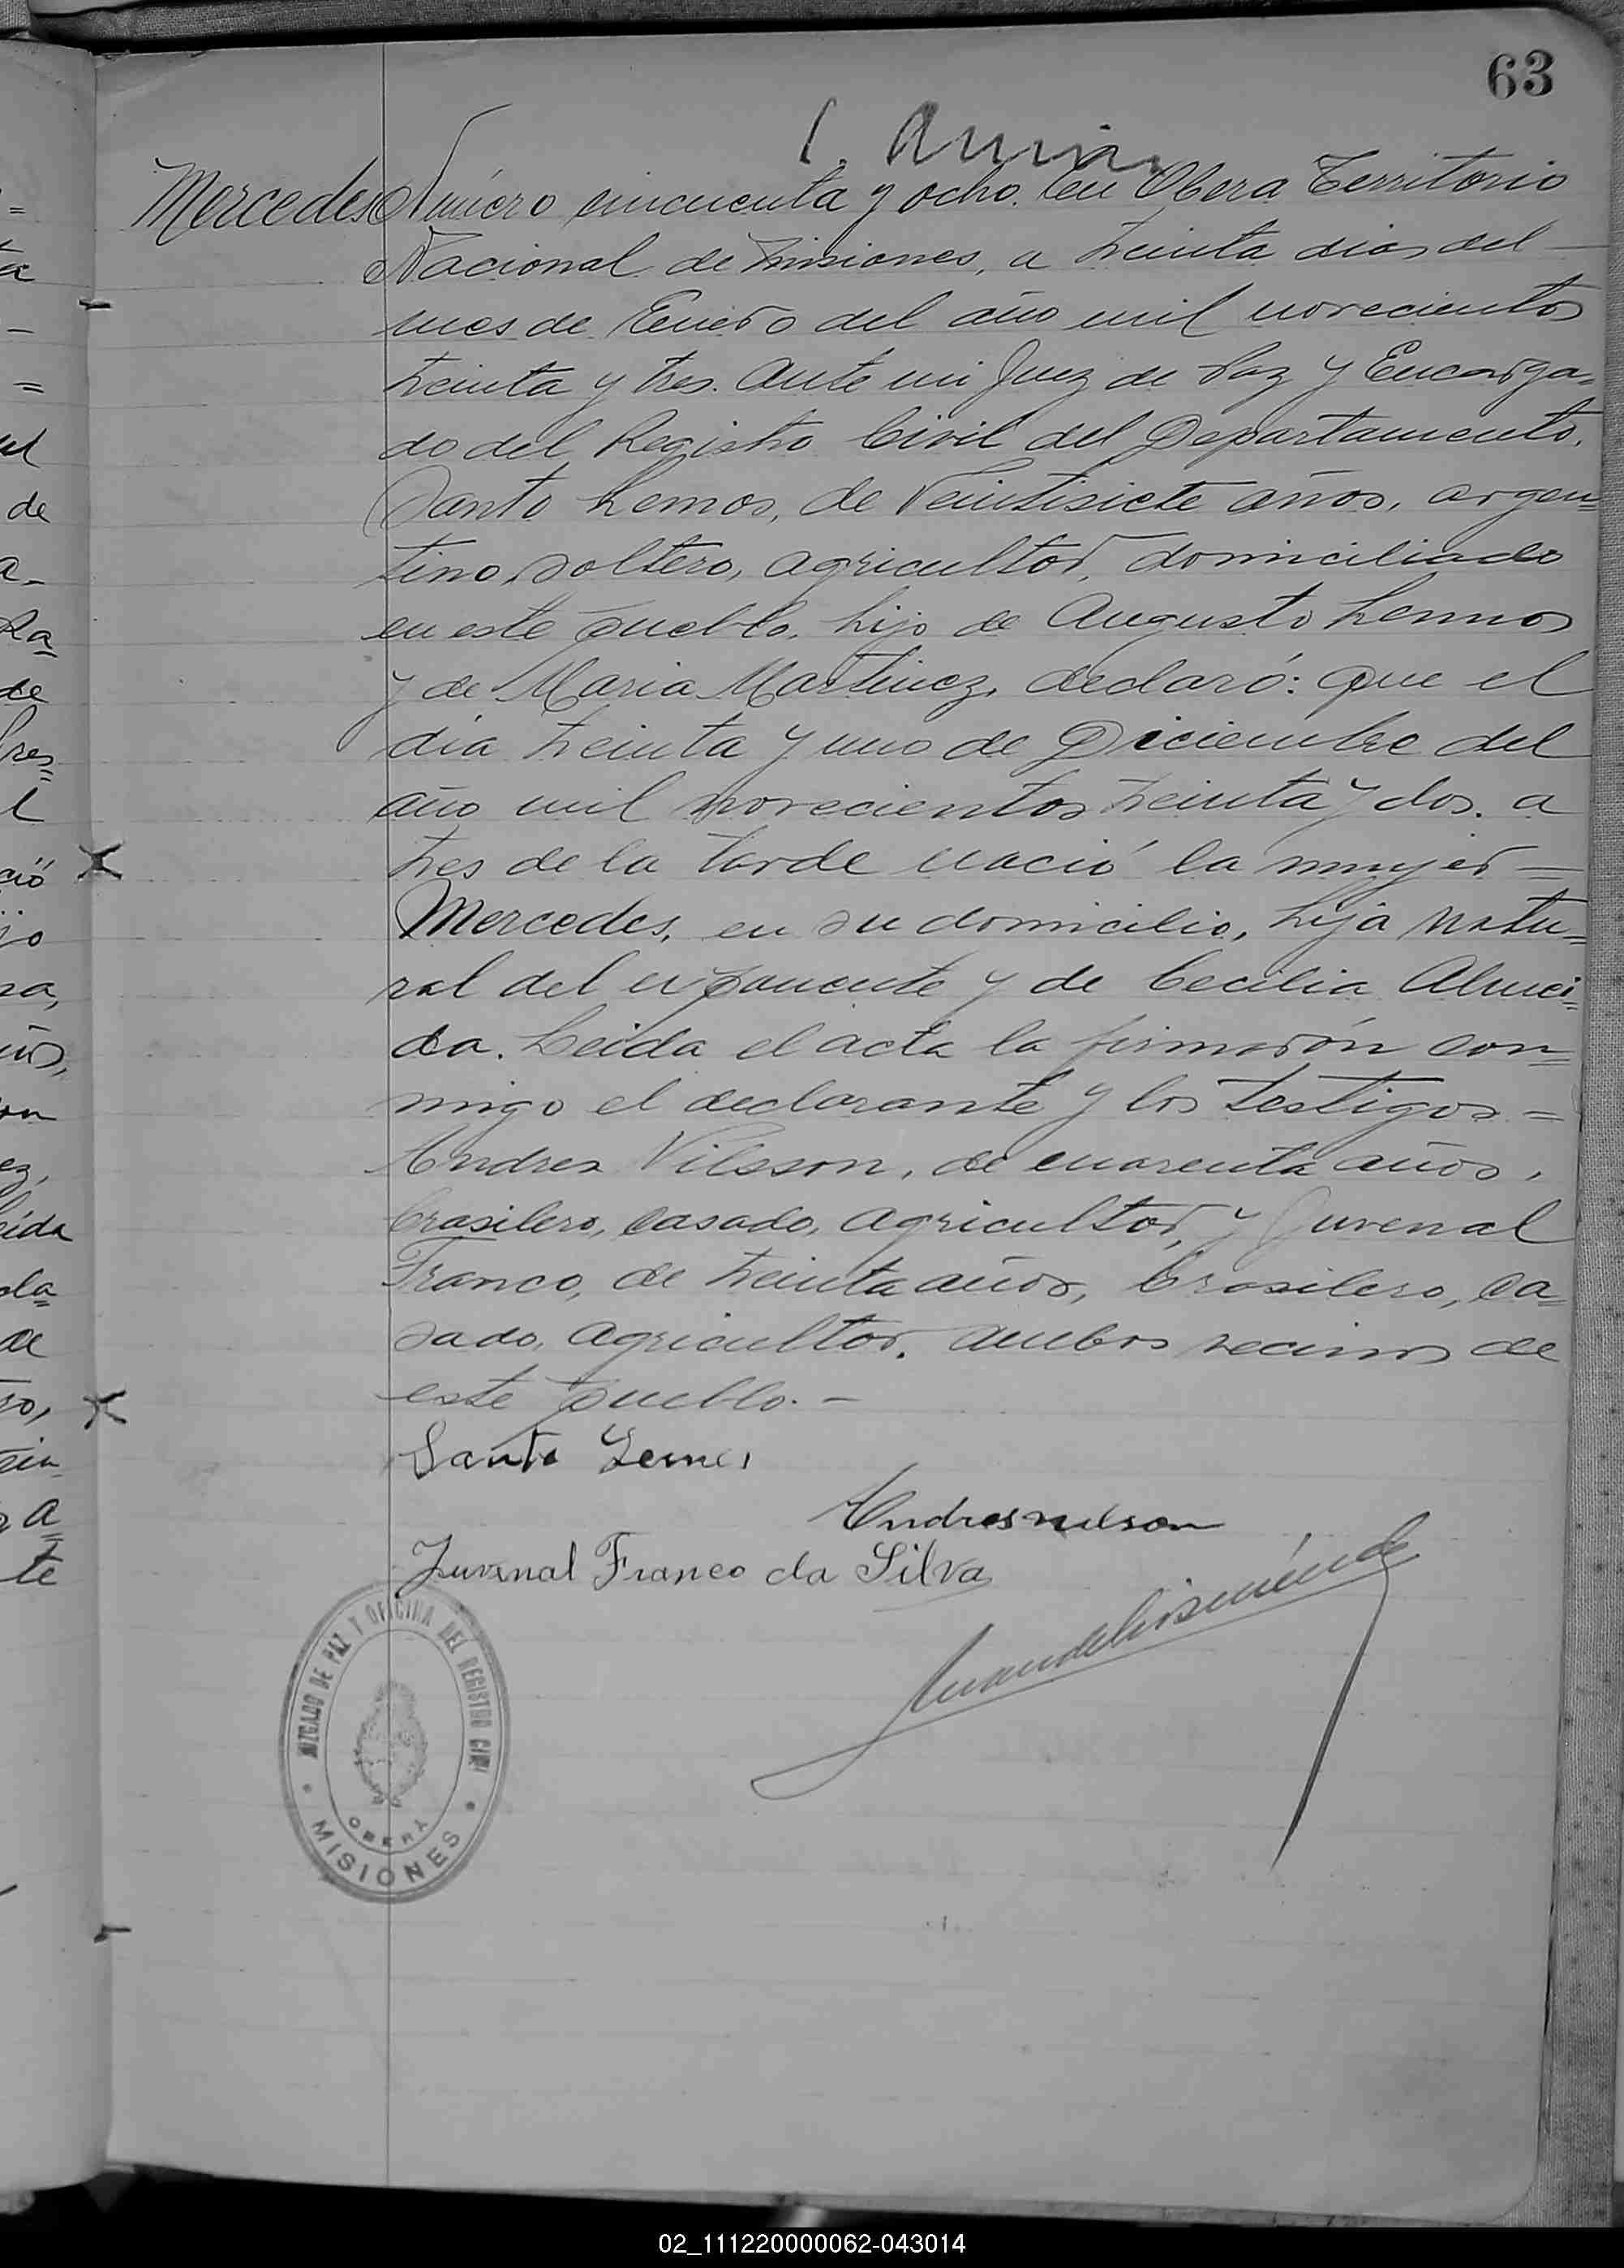 63
Mercedes
Número cincuenta y ocho. En Obera Territorio
Nacional de Misiones, a treinta dias del
mes de Enero del año mil novecientos
treinta y tres. Ante mi Juez de Paz y Encarga=
do del Registro Civil del Departamento.
Santo Lemos, de Veintisiete años, argen=
tino, soltero, agricultor, domiciliado
en este pueblo, hijo de Augusto Lemos
y de Maria Martinez, declaró: que el
dia treinta y uno de Diciembre del
año mil novecientos treinta y dos. a
tres de la tarde nació la mujer =
Mercedes, en su domicilio, hija natu=
ral del exponente y de Cecilia Almei=
da. Leida el acta la firmarón con=
migo el declarante y los testigos =
Andres Nilsson, de cuarenta años,
brasilero, casado, agricultor, y Juvenal
Franco, de treinta años, brasilero, ca=
sado, agricultor. ambos vecinos de
este pueblo. -
Santo Lemos
Andres nilson
Juvenal Franco da Silva
JUZGADO DE PAZ Y OFICINA DEL REGISTRO CIVIL
OBERÁ
MISIONES
=
ta
de
a-
Ra=
de
l
ció
jo
sa,
años,
ez,
eida
da=
de
so,
a=
te
02_111220000062-043014